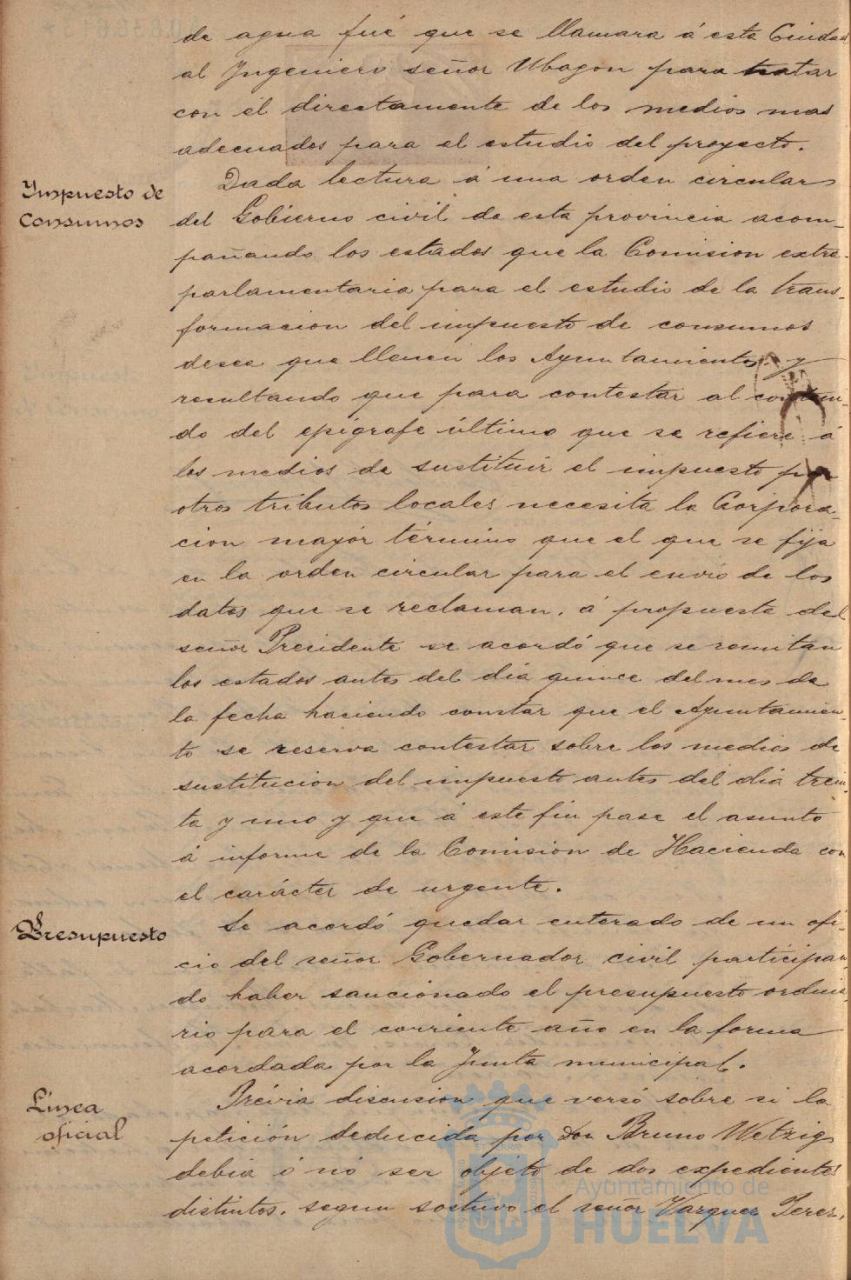 de agua fué que se llamara á esta Ciudad
al Ingeniero señor Ubagon para tratar
con él directamente de los medios mas
adecuados para el estudio del proyecto.
Impuesto de
Consumos
Dada lectura á una orden circular
del Gobierno civil de esta provincia acom-
pañando los estados que la Comision extra-
parlamentaria para el estudio de la trans-
formacion del impuesto de consumos
desea que llenen los Ayuntamientos y
resultando que para contestar al conteni-
do del epigrafe último que se refiere á
los medios de sustituir el impuesto por
otros tributos locales necesita la Corpora-
cion mayor término que el que se fija
en la orden circular para el envio de los
datos que se reclaman, á propuesta del
señor Presidente se acordó que se remitan
los estados antes del dia quince del mes de
la fecha haciendo constar que el Ayuntamien-
to se reserva contestar sobre los medios de
sustitucion del impuesto antes del dia trein-
ta y uno y que á este fin pase el asunto
á informe de la Comision de Hacienda con
el carácter de urgente.
Presupuesto
Se acordó quedar enterado de un ofi-
cio del señor Gobernador civil participan-
do haber sancionado el presupuesto ordina-
rio para el corriente año en la forma
acordada por la Junta municipal.
Línea
oficial
Prévia discusion que versó sobre si la
petición deducida por don Bruno Wetzig
debia ó nó ser objeto de dos expedientes
distintos, segun sostuvo el señor Vazquez Perez,
Ayuntamiento de
HUELVA